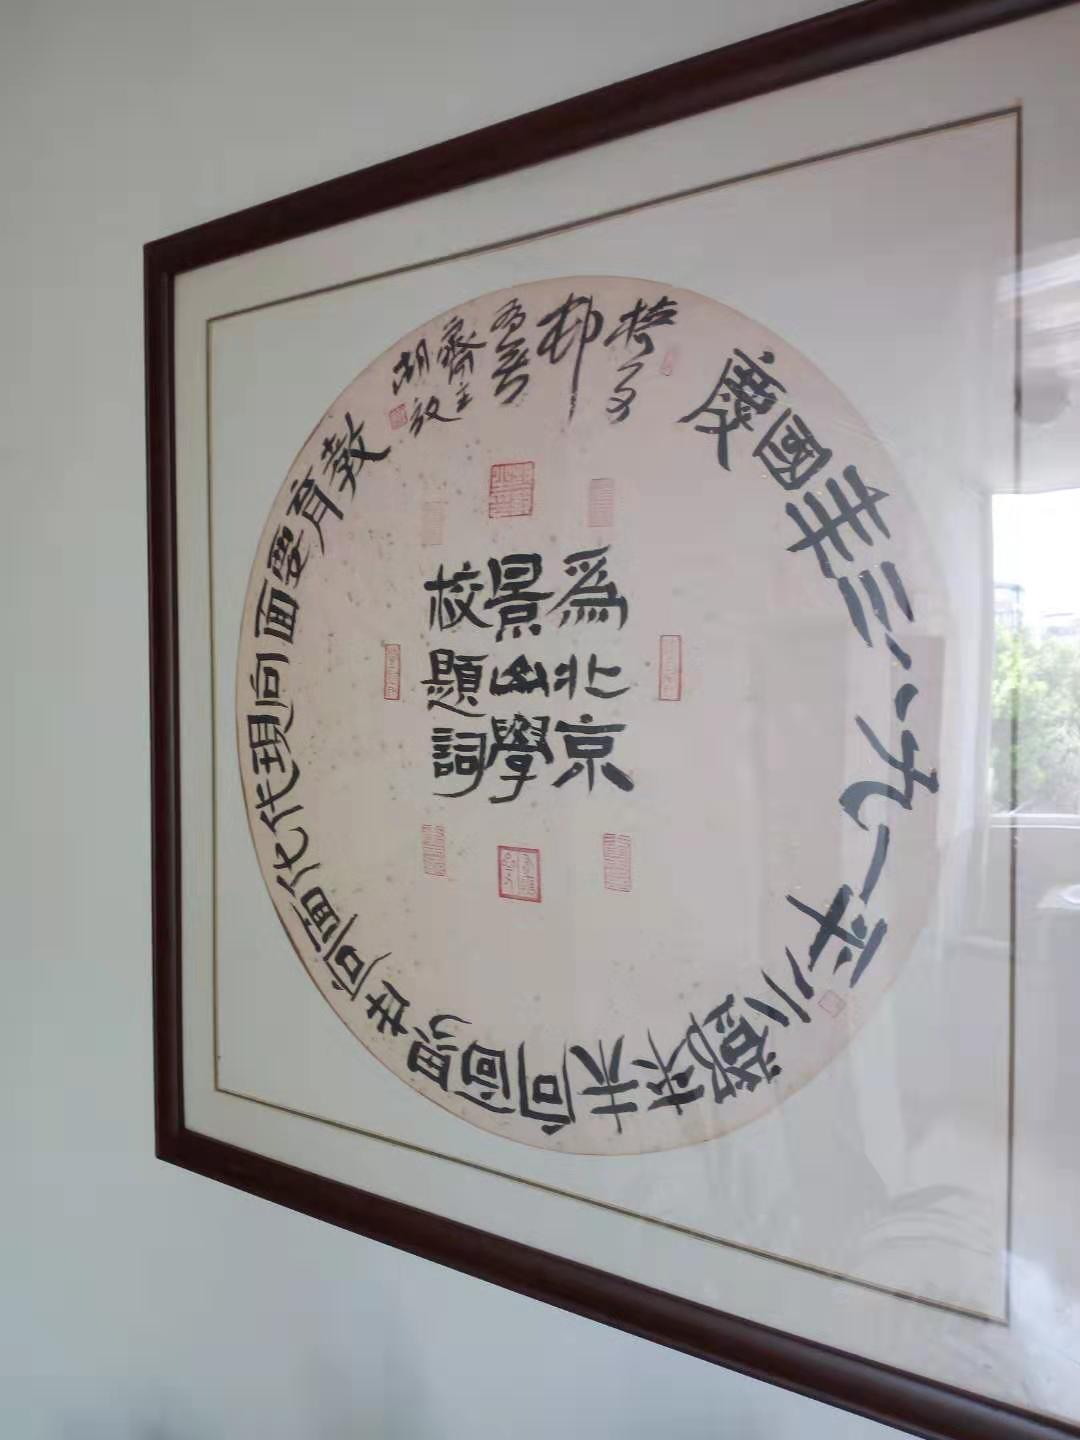 爲北京
景山學
校題詞
教育要面向現代化面向世界面向未來鄧小平一九八三年國慶
齋主